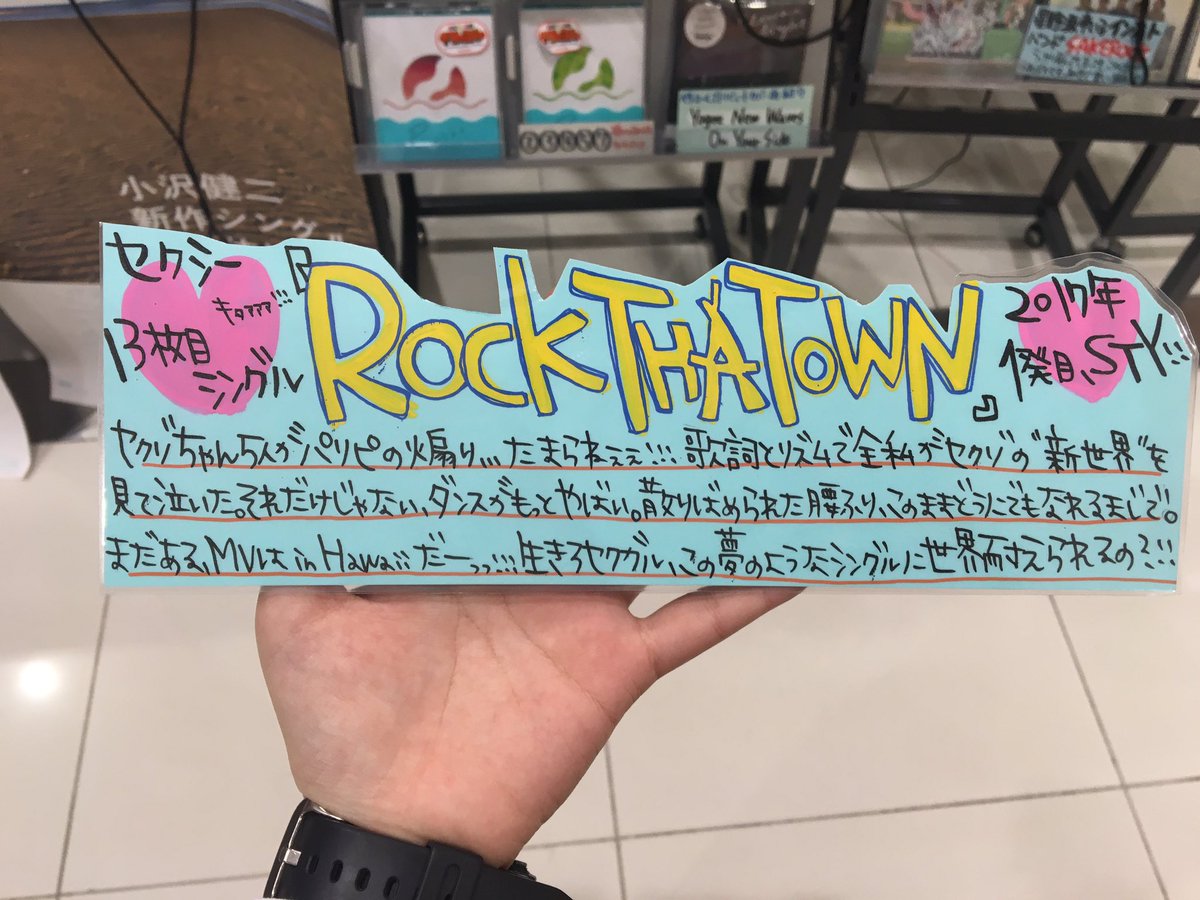 小沢健二
新作シングル
Yogee New Waves
On Your Side
セクシー
キタァァァ!!!
13枚目
シングル
『ROCK THA TOWN』
2017年
1発目、STY!!!
セクゾちゃん5人がパリピの火煽り、、、たまらねぇぇ!!!歌詞とリズムで全私がセクゾの"新世界"を
見て泣いた。それだけじゃない、ダンスがもっとやばい。散りばめられた腰ふり、このままどうにでもなれるまじで。
まだある、MVは in Hawaiiだーっっ!!!生きろセクガル、この夢のようなシングルに世界耐えられるの?!!